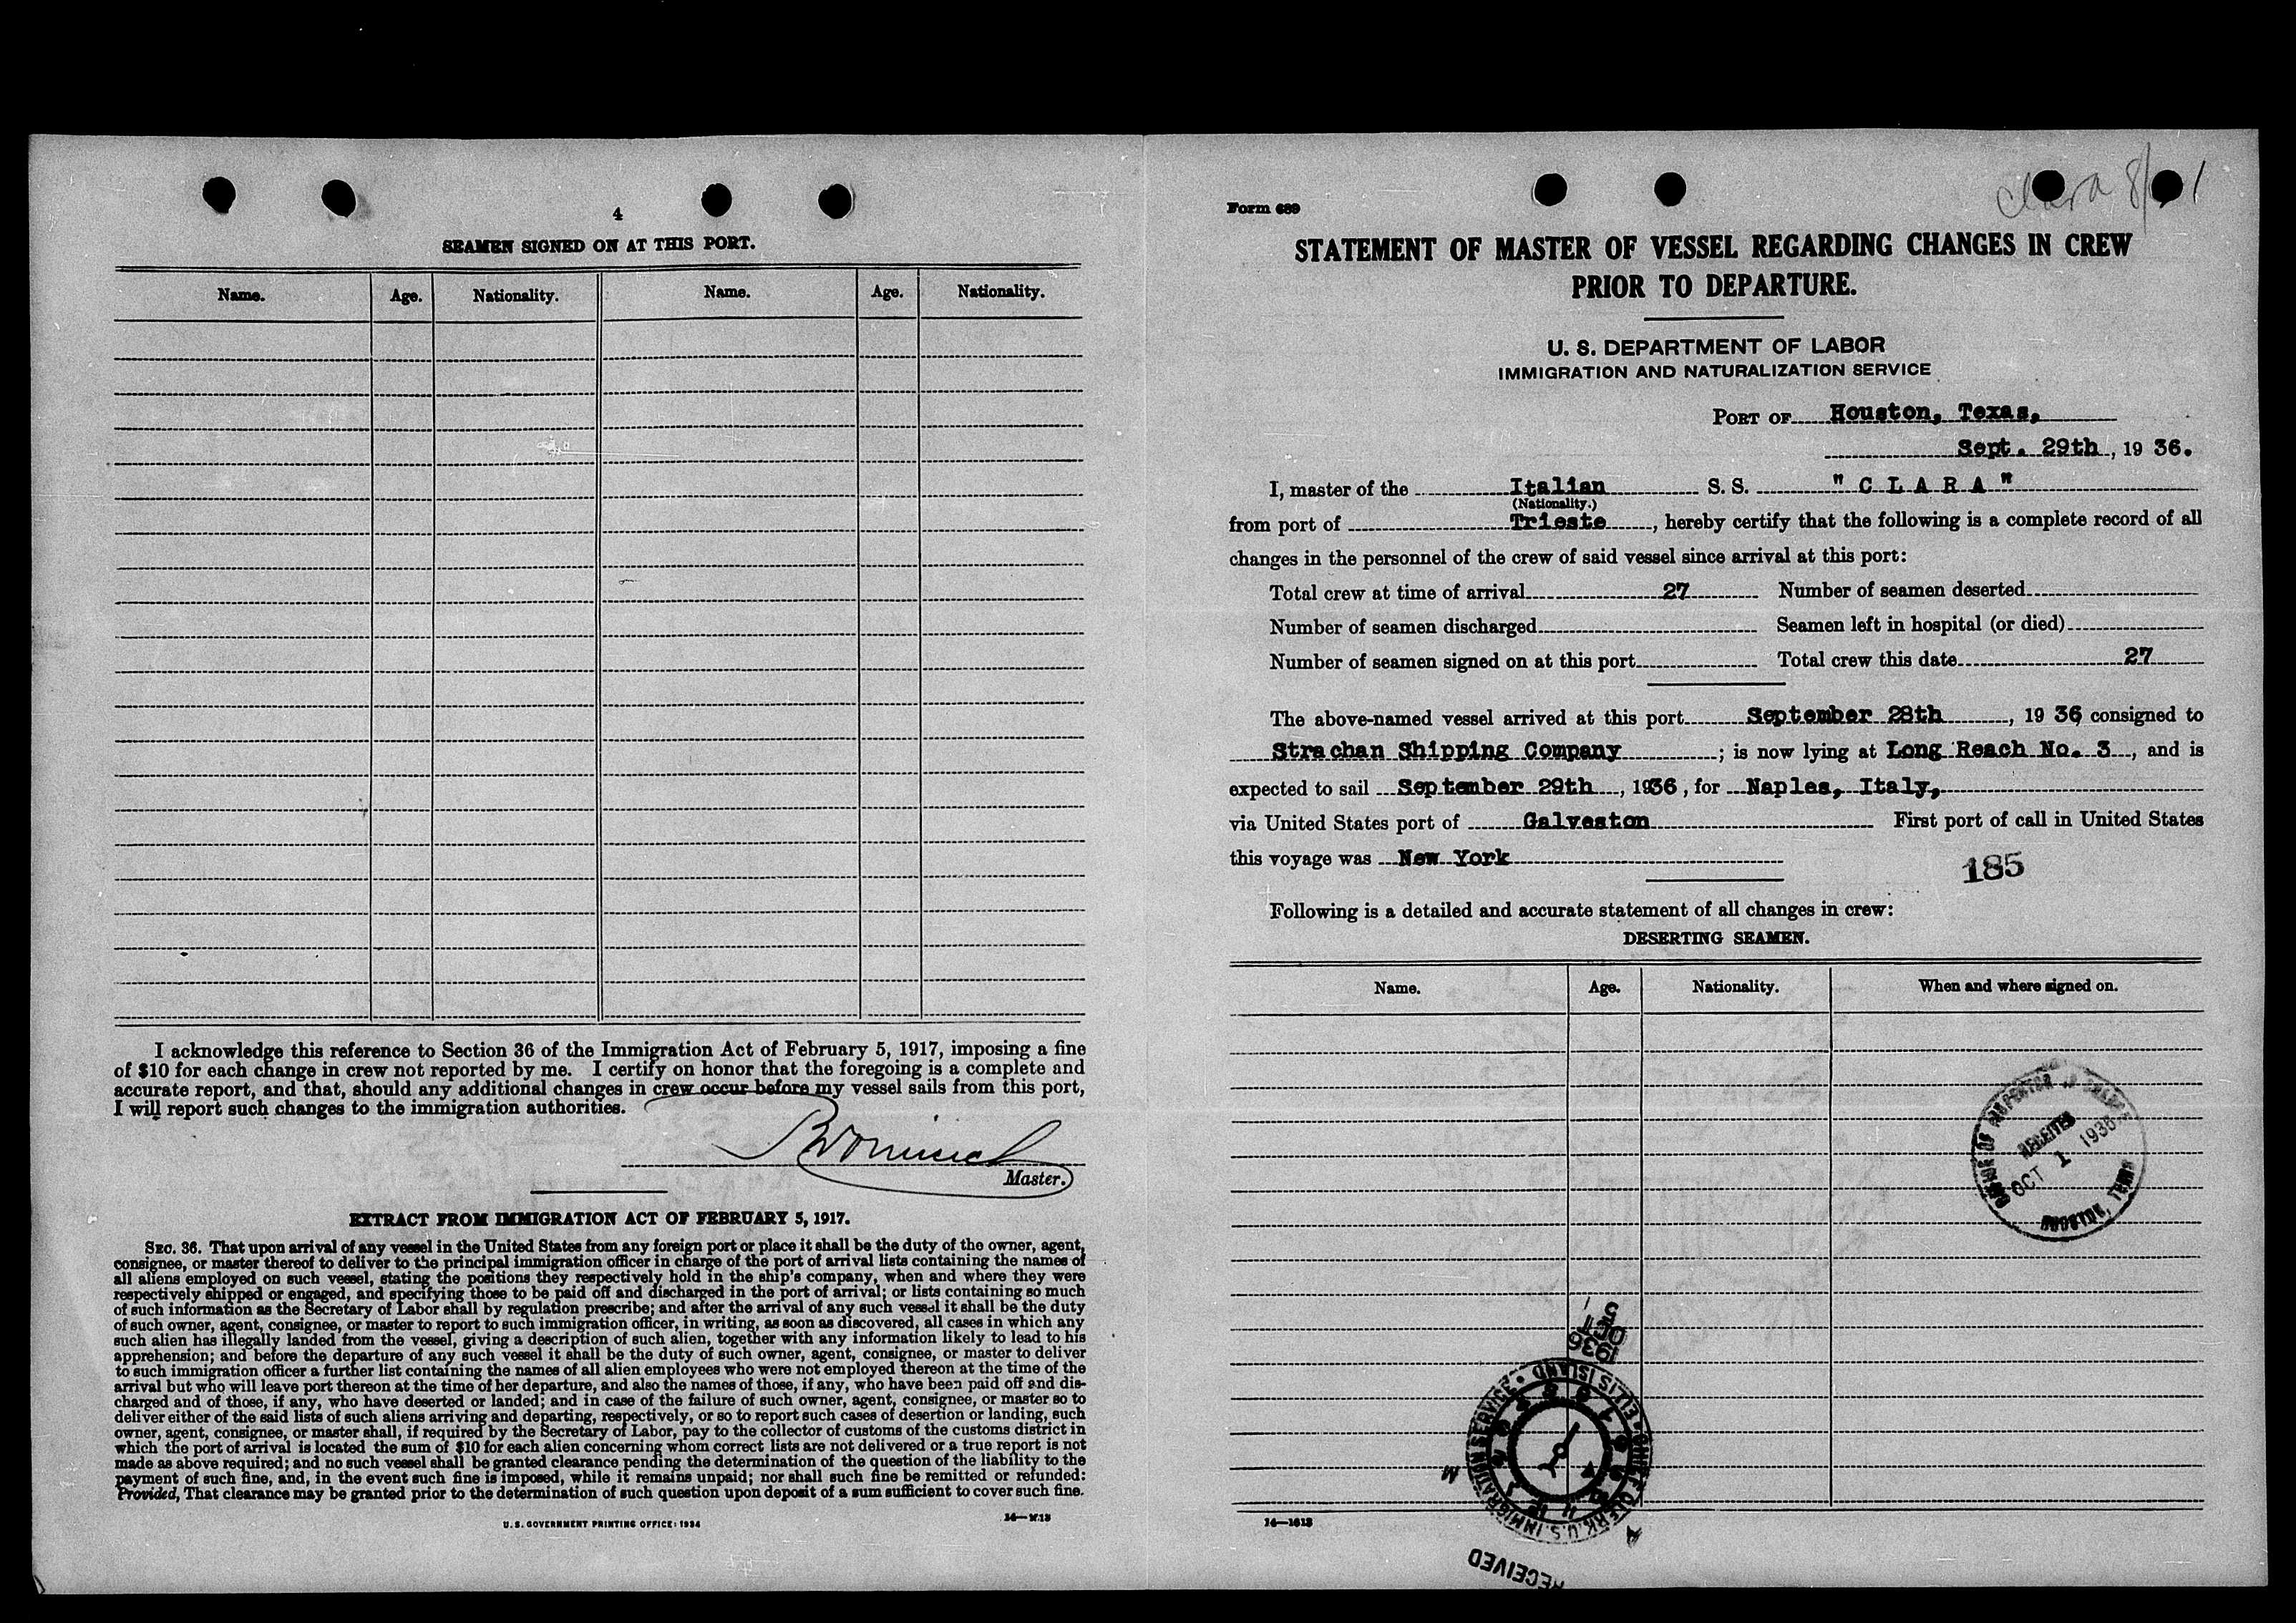 4
SEAMEN SIGNED ON AT THIS PORT.
Name. Age. Nationality. Name. Age. Nationality.
I acknowledge this reference to Section 36 of the Immigration Act of February 5, 1917, imposing a fine
of $10 for each change in crew not reported by me. I certify on honor that the foregoing is a complete and
accurate report, and that, should any additional changes in crew occur before my vessel sails from this port,
I will report such changes to the immigration authorities.
Master.
EXTRACT FROM IMMIGRATION ACT OF FEBRUARY 5, 1917.
SEC. 36. That upon arrival of any vessel in the United States from any foreign port or place it shall be the duty of the owner, agent,
consignee, or master thereof to deliver to the principal immigration officer in charge of the port of arrival lists containing the names of
all aliens employed on such vessel, stating the positions they respectively hold in the ship's company, when and where they were
respectively shipped or engaged, and specifying those to be paid off and discharged in the port of arrival; or lists containing so much
of such information as the Secretary of Labor shall by regulation prescribe; and after the arrival of any such vessel it shall be the duty
of such owner, agent, consignee, or master to report to such immigration officer, in writing, as soon as discovered, all cases in which any
such alien has illegally landed from the vessel, giving a description of such alien, together with any information likely to lead to his
apprehension; and before the departure of any such vessel it shall be the duty of such owner, agent, consignee, or master to deliver
to such immigration officer a further list containing the names of all alien employees who were not employed thereon at the time of the
arrival but who will leave port thereon at the time of her departure, and also the names of those, if any, who have been paid off and dis-
charged and of those, if any, who have deserted or landed; and in case of the failure of such owner, agent, consignee, or master so to
deliver either of the said lists of such aliens arriving and departing, respectively, or so to report such cases of desertion or landing, such
owner, agent, consignee, or master shall, if required by the Secretary of Labor, pay to the collector of customs of the customs district in
which the port of arrival is located the sum of $10 for each alien concerning whom correct lists are not delivered or a true report is not
made as above required; and no such vessel shall be granted clearance pending the determination of the question of the liability to the
payment of such fine, and, in the event such fine is imposed, while it remains unpaid; nor shall such fine be remitted or refunded:
Provided, That clearance may be granted prior to the determination of such question upon deposit of a sum sufficient to cover such fine.
U. S. GOVERNMENT PRINTING OFFICE: 1934
Form 689
Clara
STATEMENT OF MASTER OF VESSEL REGARDING CHANGES IN CREW
PRIOR TO DEPARTURE.
U. S. DEPARTMENT OF LABOR
IMMIGRATION AND NATURALIZATION SERVICE
PORT OF Houston, Texas,
Sept. 29th, 19 36.
I, master of the Italian S. S. " C L A R A "
(Nationality.)
from port of Trieste, hereby certify that the following is a complete record of all
changes in the personnel of the crew of said vessel since arrival at this port:
Total crew at time of arrival 27 Number of seamen deserted
Number of seamen discharged Seamen left in hospital (or died)
Number of seamen signed on at this port Total crew this date 27
The above-named vessel arrived at this port September 28th, 19 36 consigned to
Strachan Shipping Company; is now lying at Long Reach No. 3, and is
expected to sail September 29th, 1936, for Naples, Italy,
via United States port of Galveston First port of call in United States
this voyage was New York
185
Following is a detailed and accurate statement of all changes in crew:
DESERTING SEAMEN.
Name. Age. Nationality. When and where signed on.
RECEIVED
OCT 1 1936
HOUSTON, TEXAS
OCT
1936
CHIEF CLERK, U.S. IMMIGRATION SERVICE • ELLIS ISLAND
RECEIVED
14—1613